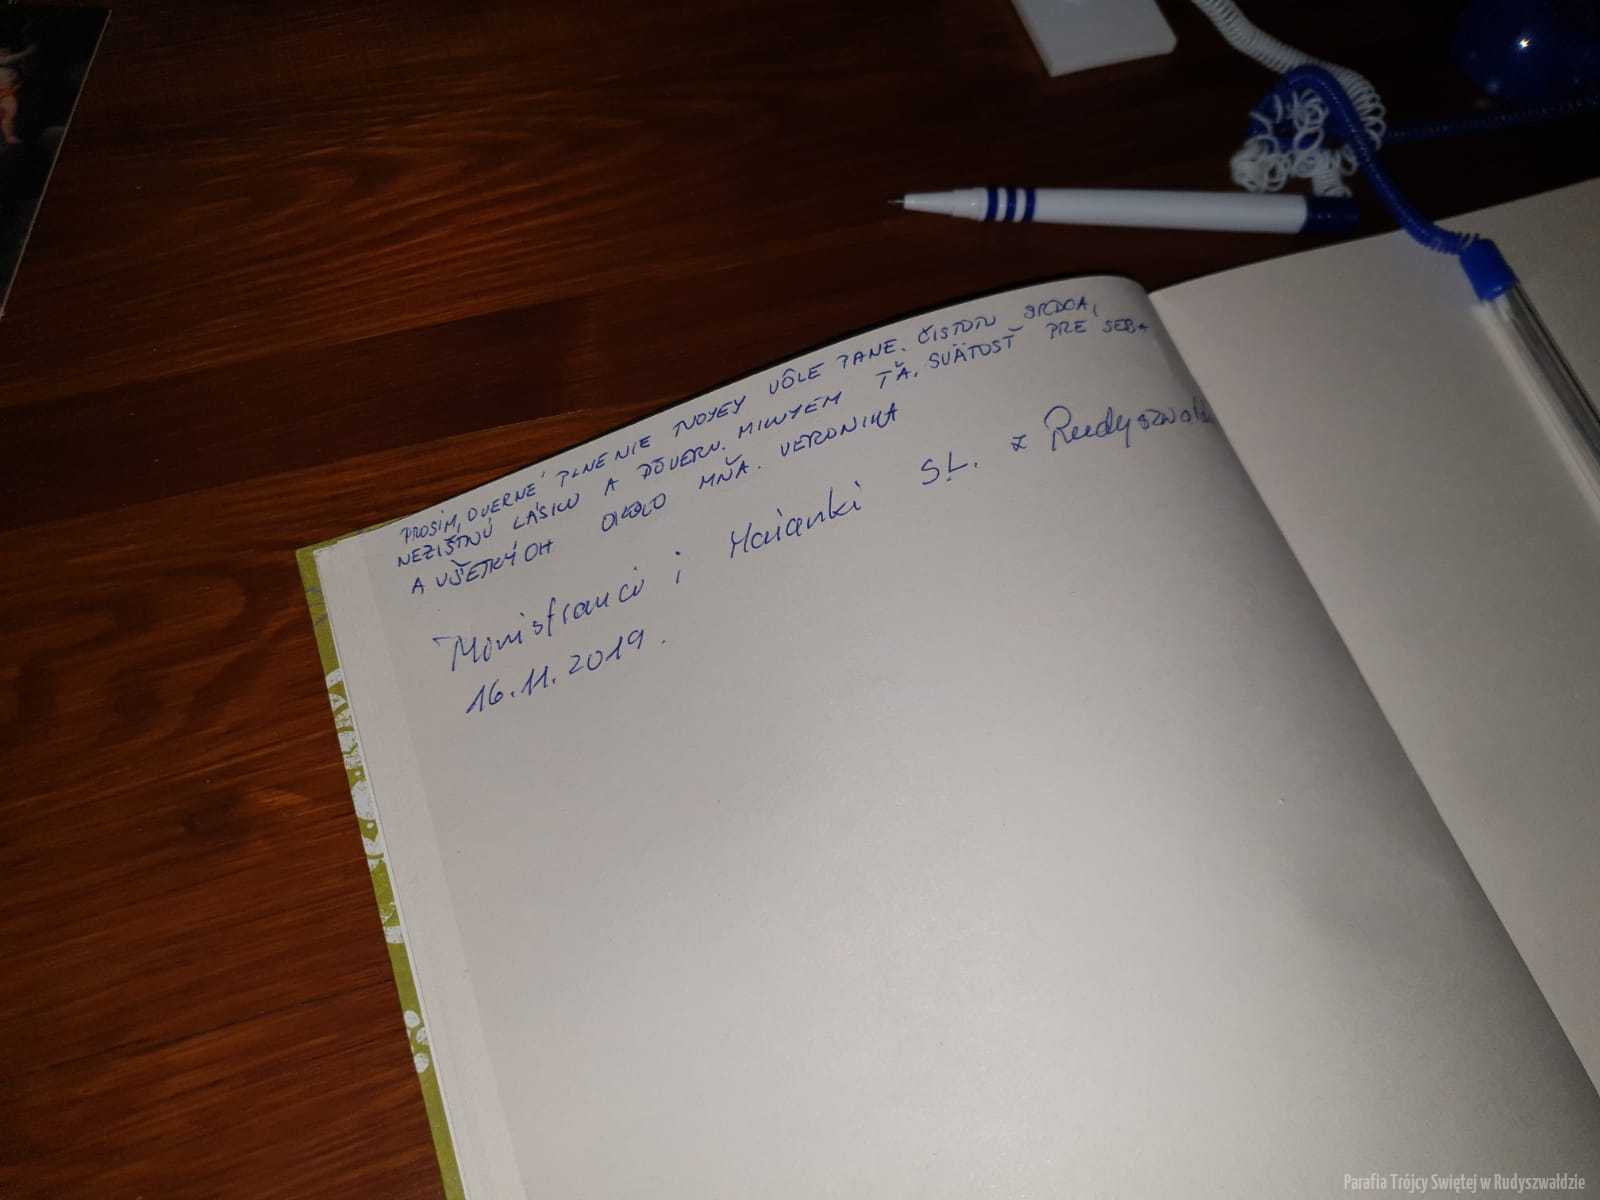 PROSÍM, DVERNÉ PLNENIE TVOJEJ VÔLE PANE. ČISTOTU SRDCA,
NEZIŠTNÚ LÁSKU A DÔVERU. MILUJEM ŤA. SVÄTOSŤ PRE SEBA
A VŠETKÝCH OKOLO MŇA. VERONIKA
Ministranci i Marianki ŚL. z Rudyszwałd
16.11.2019.
Parafia Trójcy Swiętej w Rudyszwałdzie